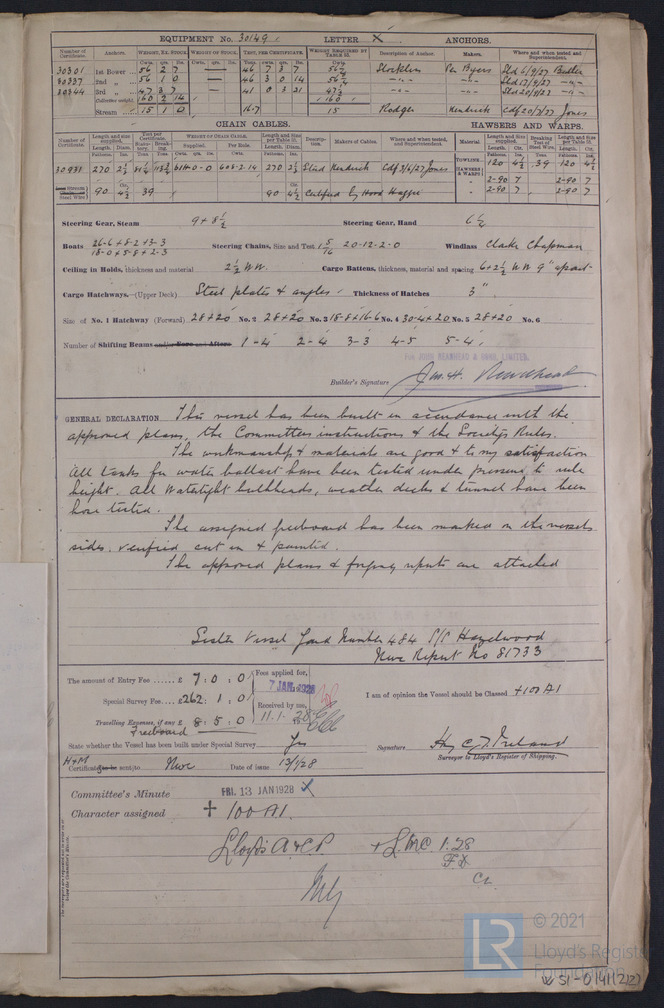 EQUIPMENT No. 30149 LETTER X ANCHORS.
Number of Certificate. Anchors. WEIGHT, EX. STOCK. WEIGHT OF STOCK. TEST, PER CERTIFICATE. WEIGHT REQUIRED BY TABLE 31. Description of Anchor. Makers. Where and when tested and Superintendent.
30301 1st Bower 56 2 7 — 46 7 3 7 56½ Stockless Per Byers Sld 6/9/27 Butler
2nd „ 56 1 0 — 46 3 0 14 56½ -"- -"- Sld 17/9/27 -"-
30344 3rd „ 47 3 7 41 0 3 21 47½ -"- -"- Sld 20/9/27 -"-
Collective weight 160 2 14 160
Stream 15 1 0 16.7 15 Rodger Kendrick Cdf 20/7/27 Jones
CHAIN CABLES. HAWSERS AND WARPS.
Number of Certificate. Length and size supplied. Test per Certificate. WEIGHT OF CHAIN CABLE. Length and Size per Table 31. Description. Makers of Cables. Where and when tested, and Superintendent. Material. Length and Size supplied. Breaking Test of Steel Wire. Length and Size per Table 31.
270 270 Stud Kendrick Cdf 3/6/27 Jones TOWLINE 120 4½ 39 120 4½
HAWSERS & WARPS 2-90 7 2-90 7
90 4½ 39 90 4½ Certified by Hood Haggie " 2-90 7 2-90 7
Steering Gear, Steam 9 + 8½ Steering Gear, Hand 6½
Boats 26-6 + 8-2 + 3-3
18-0 + 5-8 + 2-3 Steering Chains, Size and Test 1 5/16 20-12-2-0 Windlass Clarke Chapman
Ceiling in Holds, thickness and material 2½ W.W. Cargo Battens, thickness, material and spacing 6 + 2½ W W 9" apart
Cargo Hatchways.—(Upper Deck) Steel plates & angles Thickness of Hatches 3"
Size of No. 1 Hatchway (Forward) 28 + 20 No. 2 28 + 20 No. 3 18-8 + 16-6 No. 4 30-4 + 20 No. 5 28 + 20 No. 6
Number of Shifting Beams and/or Fore and Afters 1-4 2-4 3-3 4-5 5-4
For JOHN READHEAD & SONS, LIMITED.
Builder's Signature Jas. H. Readhead
GENERAL DECLARATION This vessel has been built in accordance with the
approved plans, the Committees instructions & the Society's Rules.
The workmanship & materials are good & to my satisfaction
All tanks for water ballast have been tested under pressure to rule
height. All Watertight bulkheads, weather decks & tunnel have been
hose tested.
The assigned freeboard has been marked on the vessels
sides, verified cut in & painted.
The approved plans & forging reports are attached
Sister Vessel Yard Number 484 S/S Hazelwood
Nwc Report No 81733
The amount of Entry Fee £ 7 : 0 : 0 Fees applied for,
7 JAN 1928
Special Survey Fee £262 : 1 : 0 Received by me,
11. 1. 28
I am of opinion the Vessel should be Classed +100 A1
Travelling Expenses, if any £ 8 : 5 : 0
Freeboard
State whether the Vessel has been built under Special Survey Yes
Signature Hy C. J. Ireland
Surveyor to Lloyd's Register of Shipping.
H+M
Certificate to be sent to Nwc Date of issue 13/1/28
Committee's Minute FRI. 13 JAN 1928
Character assigned + 100 A1.
Lloyds A & C.P. + L.M.C. 1.28
F.D.
CL
© 2021
LR Lloyd's Register
Foundation
W51-0141(2/2)